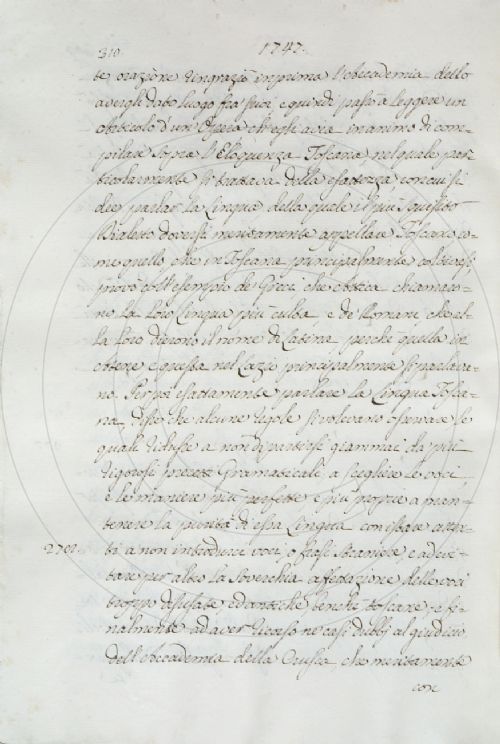 310 1747.
te orazione ringraziò in prima l'Accademia dello
avergli dato luogo fra' suoi e quindi passò a leggere un
Articolo d'un Opera ch'egli avea in animo di com-
pilare sopra l'Eloquenza Toscana nel quale par-
ticolarmente si trattava della esattezza con cui si
dee parlar la Lingua della quale il più
Dialetto doversi meritamente appellare Toscano co-
me quello che in Toscana principalmente
provò coll'esempio de' Greci, che Attica chiamaro-
no la Loro Lingua più culta, e de' Romani che al-
la Loro diedono il nome di Latina perchè quella in
Attene e questa nel Lazio principalmente si parlava-
no. Per poi esattamente parlare la Lingua Tosca-
na disse che alcune regole si volevano osservare le
quali ridusse a non dipartirsi giammai da' più
rigorosi precetti Gramaticali, a scegliere le voci
e le maniere più perfette, e più proprie a man-
tenere la purità di essa Lingua con istare atten-
2702. ti a non introdurre voci, o frasi straniere, e ad evi-
tare per altro la soverchia affettazione delle voci
troppo disusate ed antiche benchè toscane, e fi-
nalmente ad aver ricorso ne' casi dubbj al giudizio
dell'Accademia della Crusca, che meritamente
con